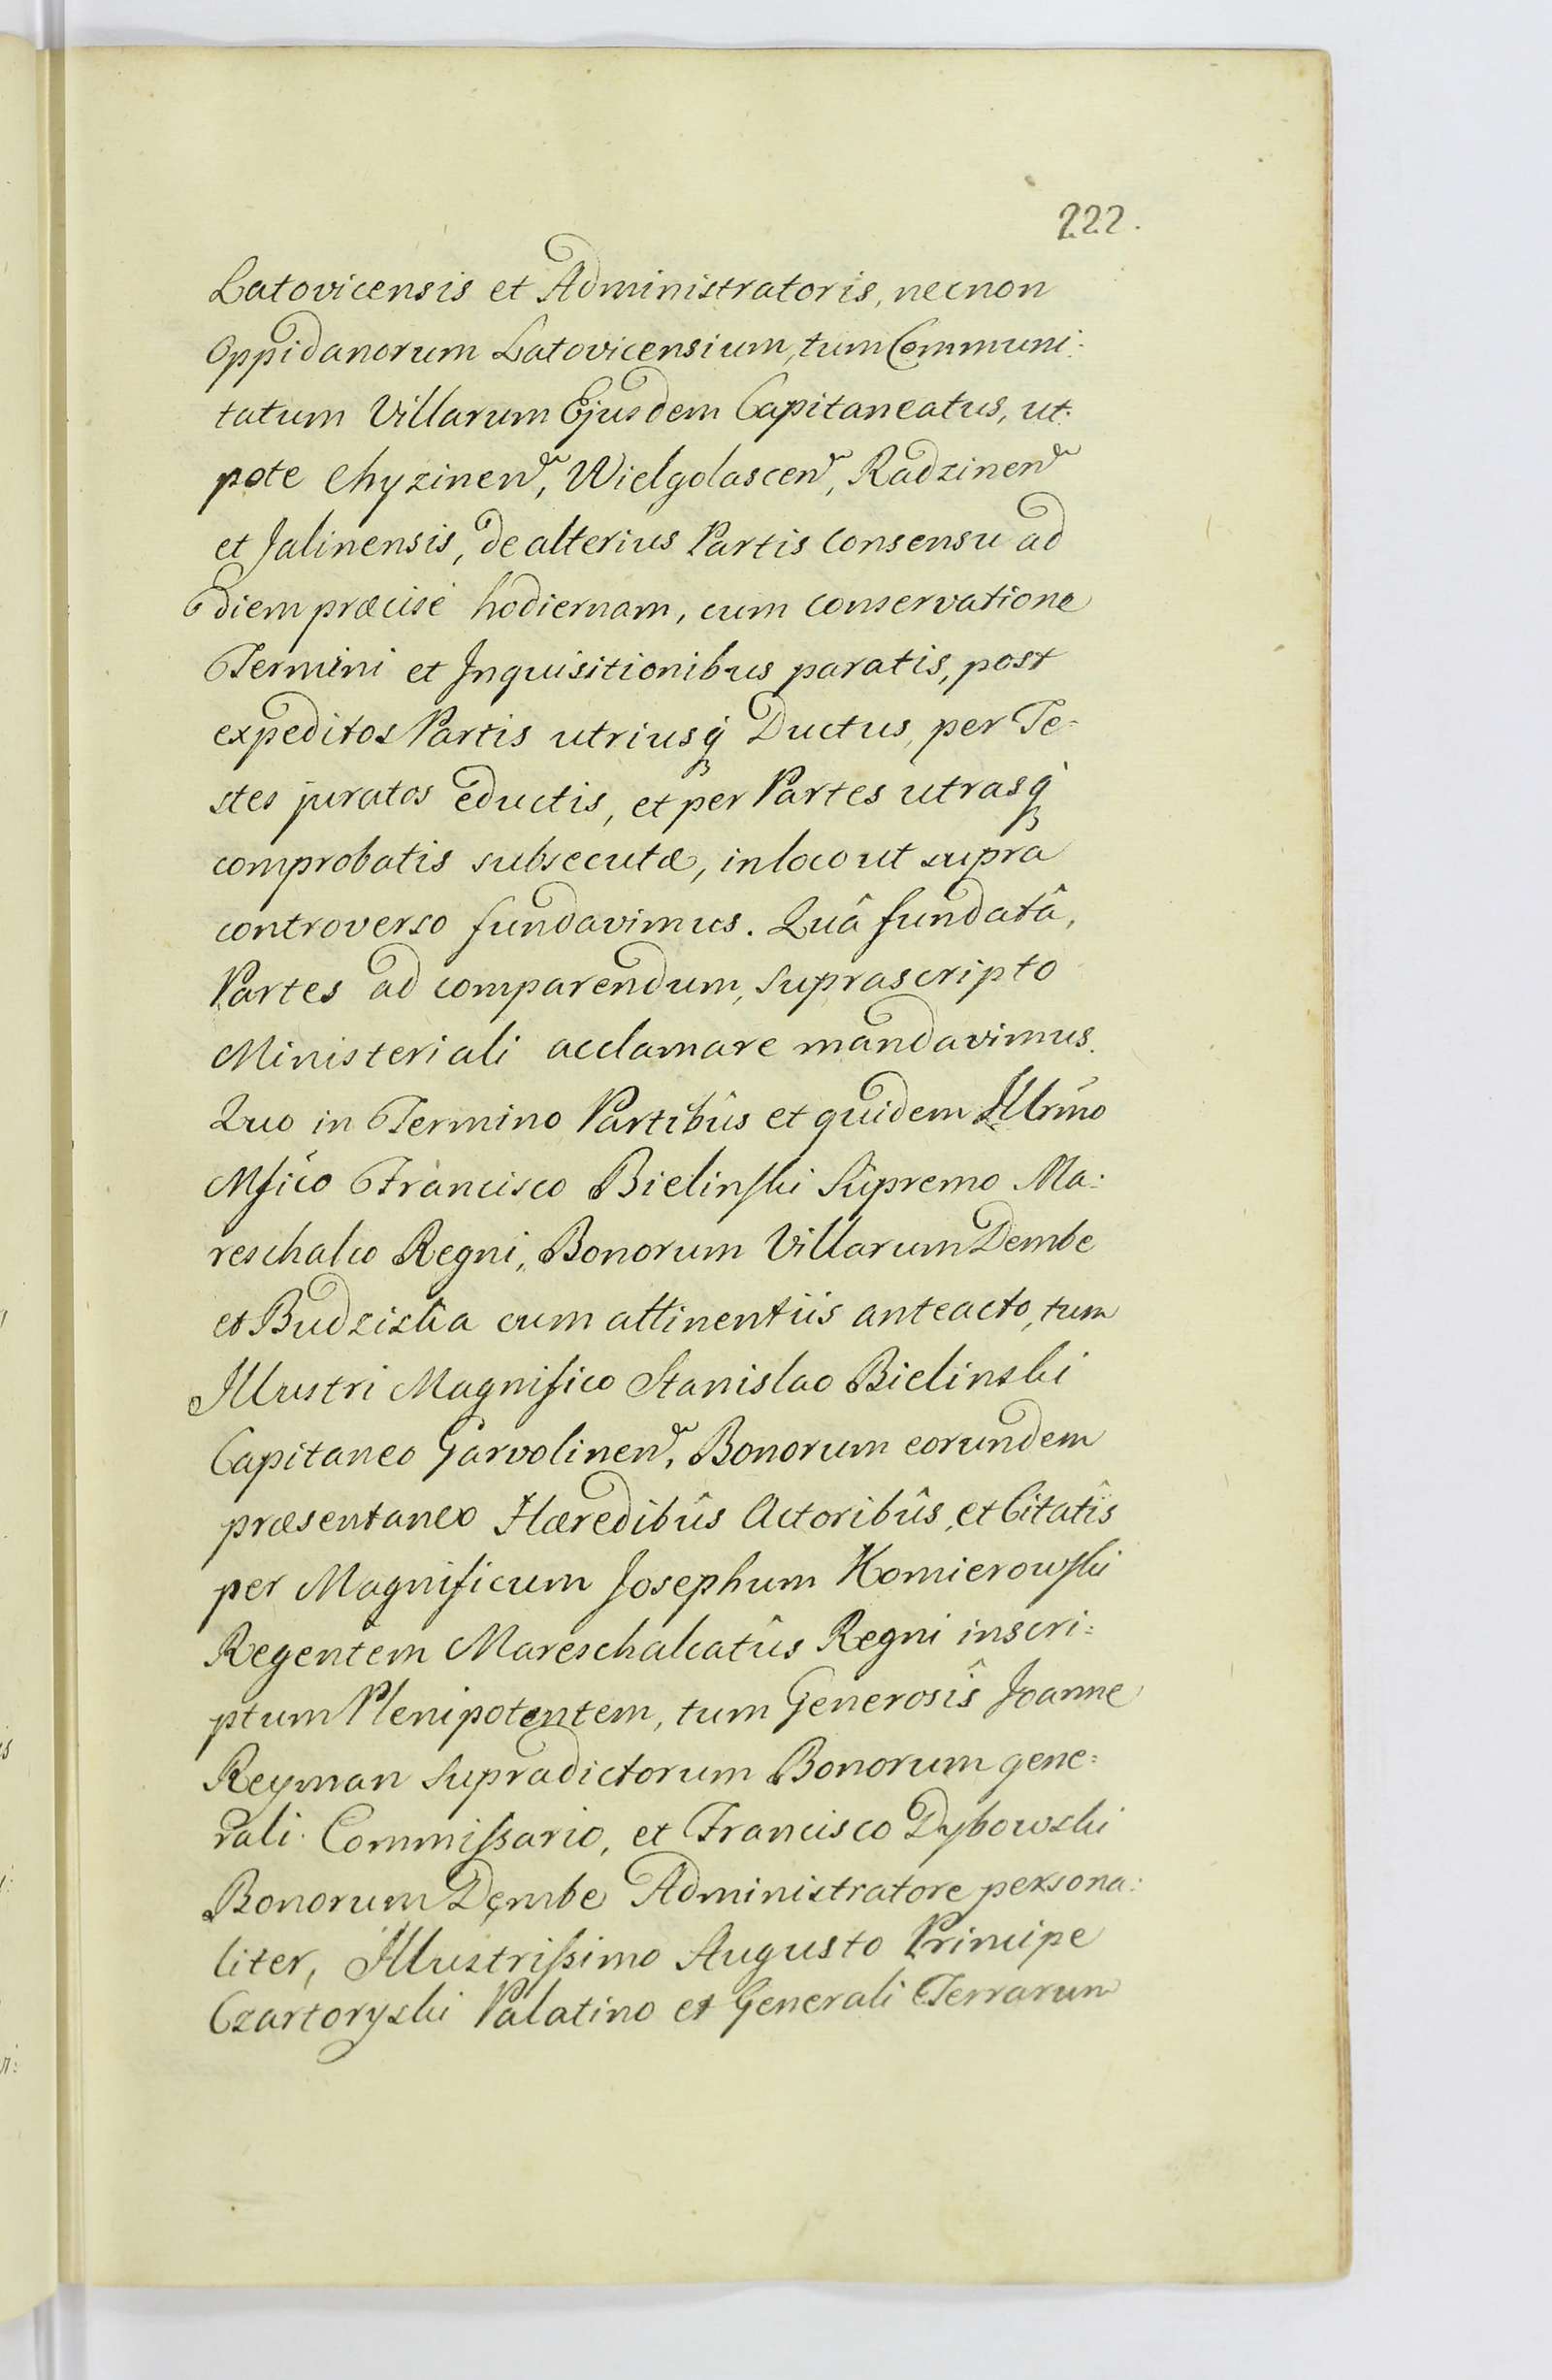 222.
Latovicensis et Administratoris, necnon
Oppidanorum Latovicensium, tum Communi:
tatum Villarum Ejusdem Capitaneatus, ut:
pote Chyzinen, Wielgolascen, Radzinen
et Jalinensis, de alterius Partis Consensu ad
diem præcisè hodiernam, cum conservatione
Termini et Inquisitionibus paratis, post
expeditos Partis utriusq Ductus, per Te=
stes juratos eductis, et per Partes utrasq
comprobatis subsecutæ, in loco ut supra
controverso fundavimus. Quâ fundatâ,
Partes ad comparendum, suprascripto
Ministeriali acclamare mandavimus.
Quo in Termino Partibûs et quidem Illrmo
Mfico Francisco Bielinski Supremo Ma:
reschalco Regni, Bonorum Villarum Dembe
et Budziska cum attinentiis anteacto, tum
Illustri Magnifico Stanislao Bielinski
Capitaneo Garvolinen, Bonorum eorundem
præsentaneo Hæredibûs Actoribûs, et Citatîs
per Magnificum Josephum Komierowski
Regentem Mareschalcatûs Regni inscri=
ptum Plenipotentem, tum Generosîs Joanne
Reyman supradictorum Bonorum gene=
rali Commissario, et Francisco Dybowski
Bonorum Dembe Administratore persona:
liter, Illustrissimo Augusto Principe
Czartoryski Palatino et Generali Terrarum